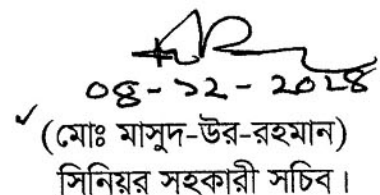 ০৪-১২-২০২৪
(মোঃ মাসুদ-উর-রহমান)
সিনিয়র সহকারী সচিব।